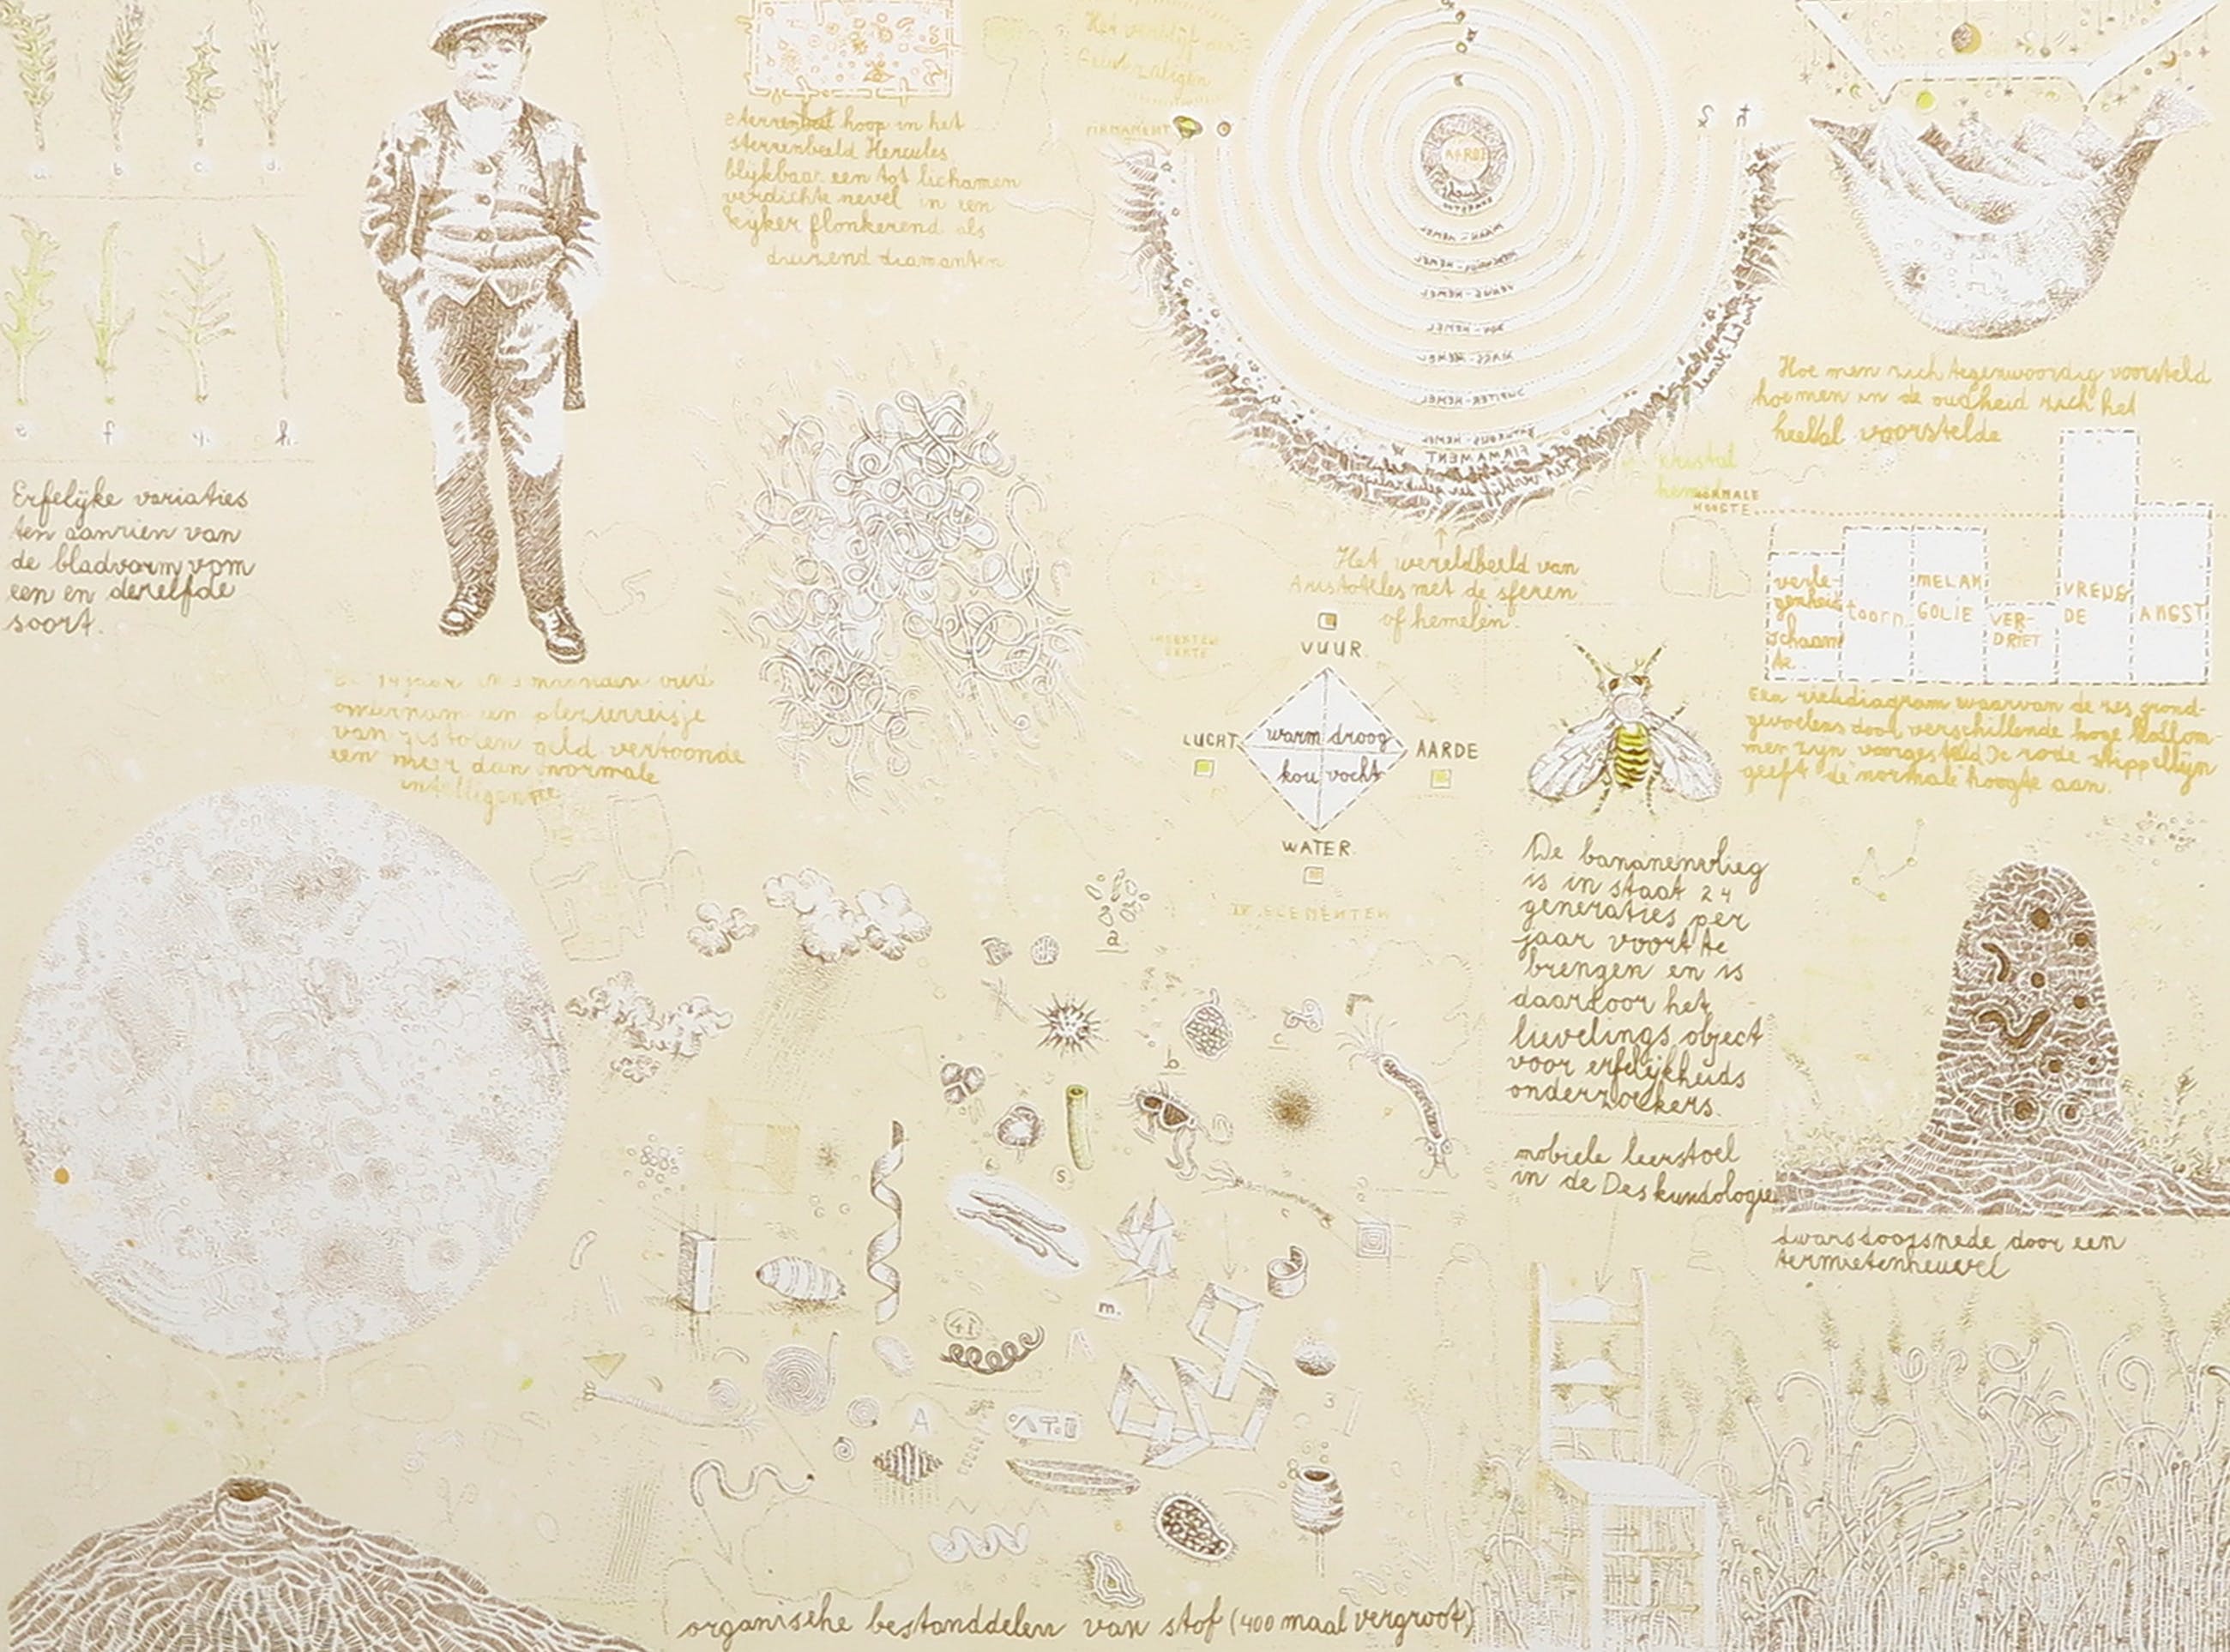 a. b. c. d.
e f g. h.
Erfelijke variaties
ten aanzien van
de bladvorm vom
een en dezelfde
soort.
De 14 jaar en 3 maanden oude
ondernam een plezierreisje
van gestolen geld vertoonde
een meer dan normale
intelligentie
sterrenbeeld hoop in het
sterrenbeeld Hercules
blijkbaar een tot lichamen
verdichte nevel in een
kijker flonkerend als
duizend diamanten
Het verblijf der
Gelukzaligen
FIRMAMENT
AARDE
MAAN-HEMEL
MERCURIUS-HEMEL
VENUS-HEMEL
ZON-HEMEL
MARS-HEMEL
JUPITER-HEMEL
SATURNUS-HEMEL
FIRMAMENT
kristal
hemel
Het wereldbeeld van
Aristoteles met de sferen
of hemelen.
Hoe men zich tegenwoordig voorsteld
hoe men in de oudheid zich het
heelal voorstelde
NORMALE
HOOGTE
verle-
genheid
schaam
te
toorn
MELAN
GOLIE
VER-
DRIET
VREUG
DE
ANGST
Een zieldiagram waarvan de zes grond-
gevoelens door verschillende hoge kolom-
men zijn voorgesteld De rode stippellijn
geeft de normale hoogte aan.
VUUR
LUCHT
AARDE
warm droog
kou vocht
WATER
IV ELEMENTEN
De bananenvlieg
is in staat 24
generaties per
jaar voort te
brengen en is
daardoor het
lievelings object
voor erfelijkheids
onderzoekers.
mobiele leerstoel
in de Deskundologie
dwarsdoorsnede door een
termietenheuvel
a
b
c
S
m.
41
A
A
organische bestanddelen van stof (400 maal vergroot)